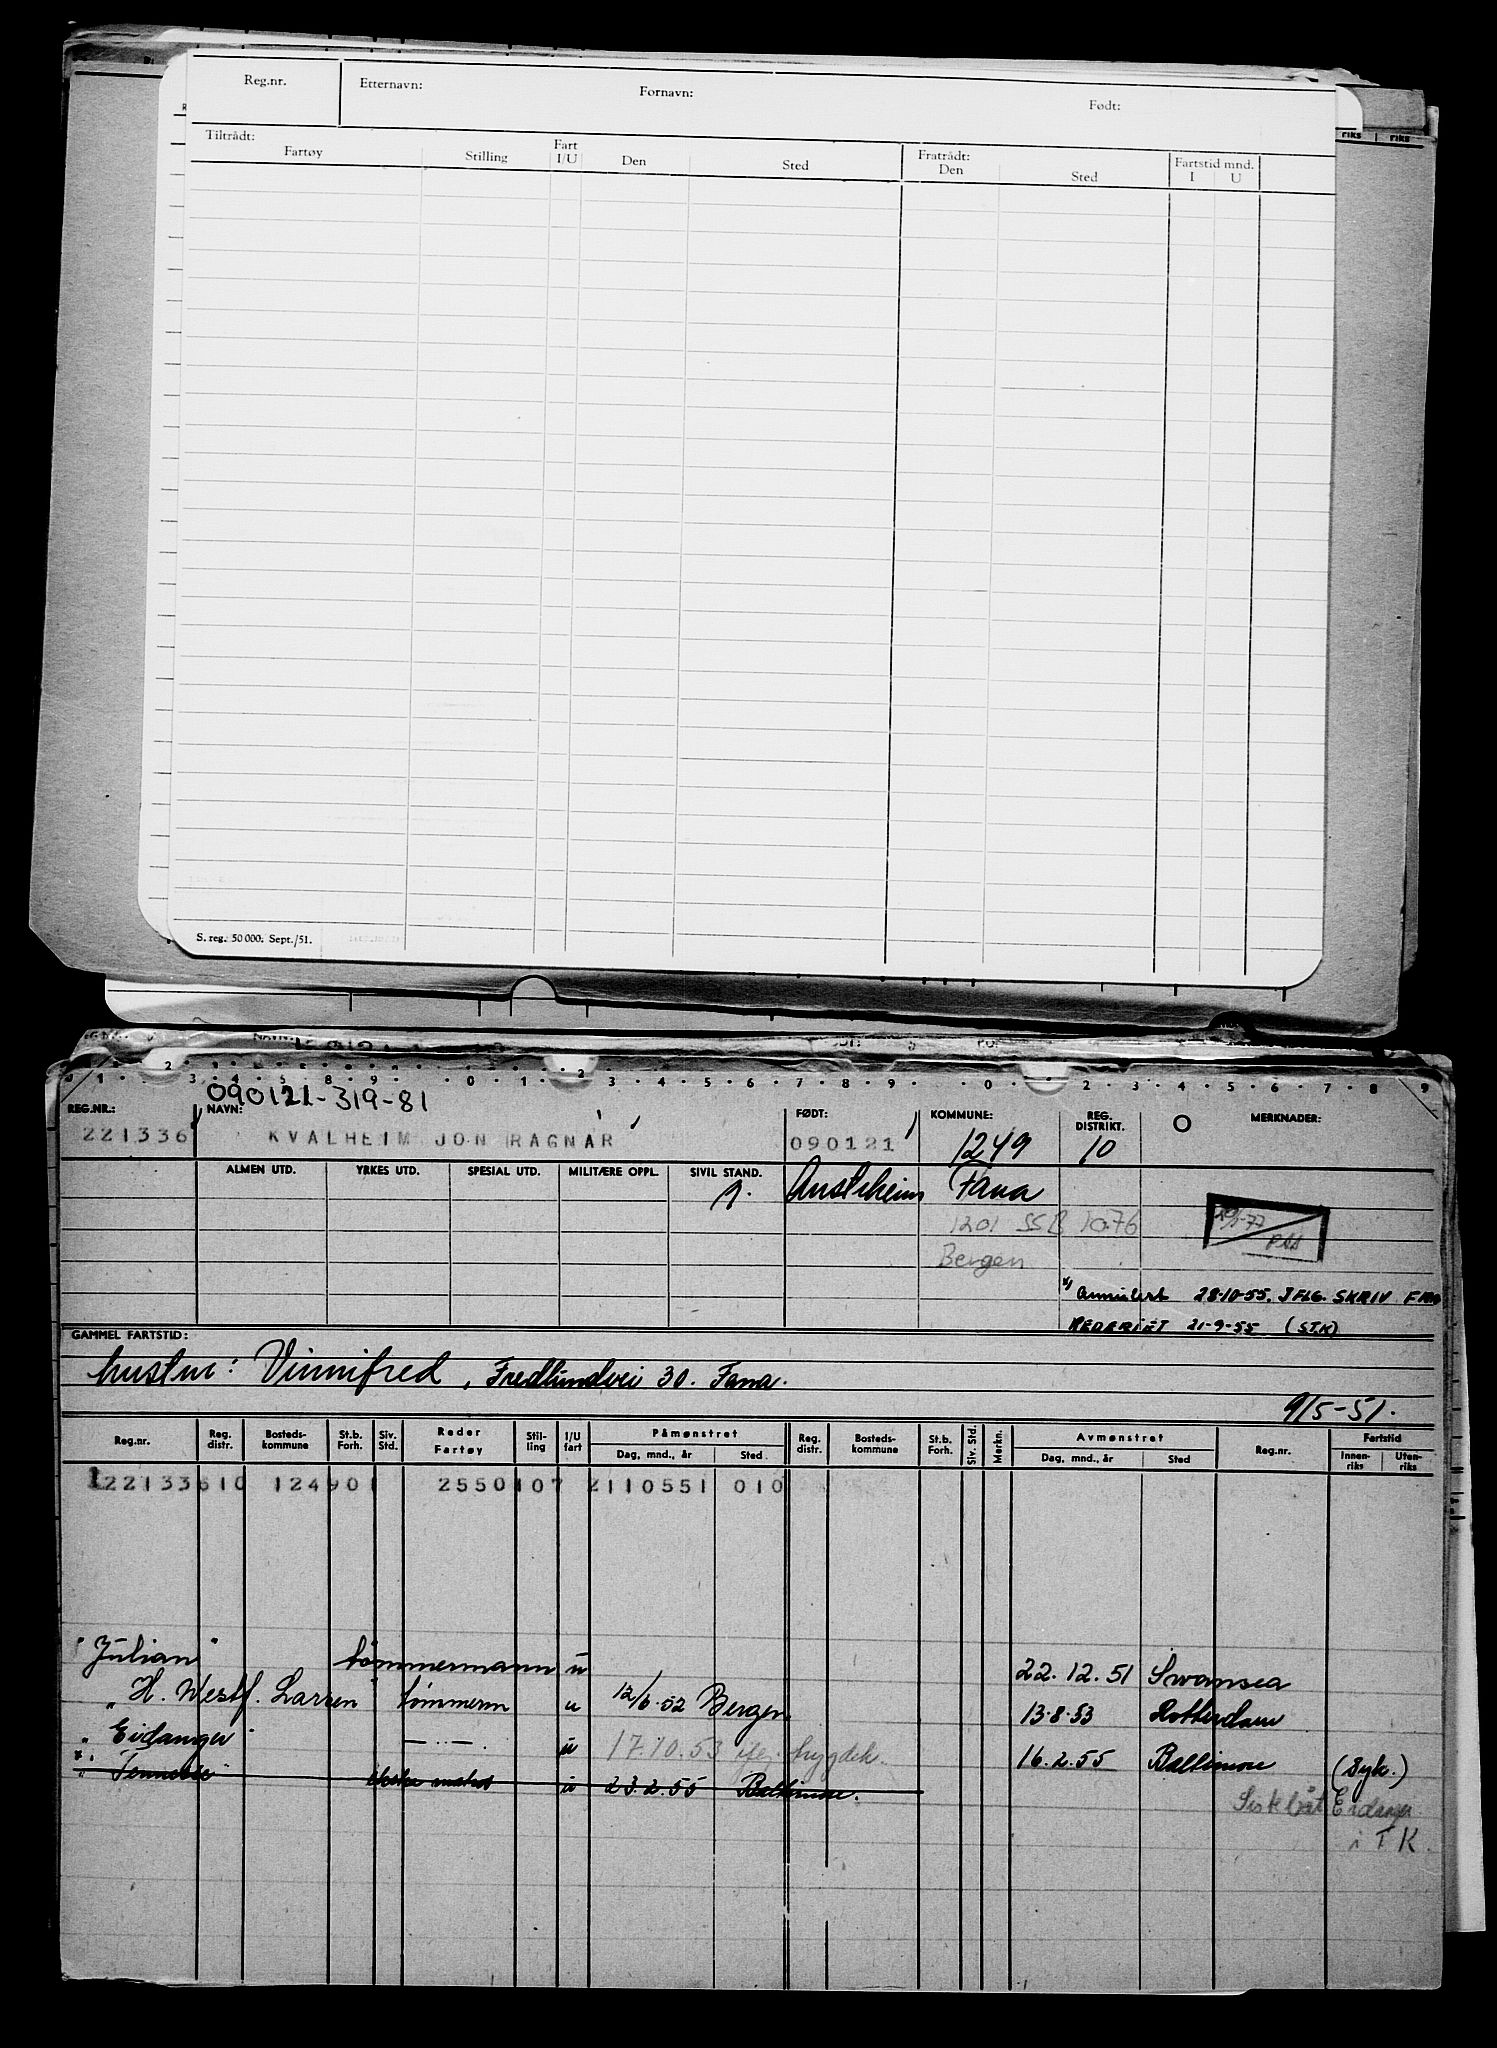 Reg.nr. Etternavn: Fornavn: Født:
Tiltrådt: Fratrådt:
Fartøy Stilling Fart I/U Den Sted Den Sted Fartstid mnd. I U
riks riks
S. reg. 50 000. Sept./51.
090121-319-81
REG.NR.: NAVN: FØDT: KOMMUNE: REG. DISTRIKT. MERKNADER:
221336 KVALHEIM JON RAGNAR 090121 1249 10
ALMEN UTD. YRKES UTD. SPESIAL UTD. MILITÆRE OPPL. SIVIL STAND.
g. Austrheim Fana
1201 SSB 1076
Bergen
x) Annulert 28-10-55. IFLG. SKRIV FRA
REDERIET 21-9-55 (STK)
GAMMEL FARTSTID:
hustru: Vinnifred, Fredlundvei 30. Fana.
9/5-51.
Reg.nr. Reg. distr. Bosteds- kommune St.b. Forh. Siv. Std. Reder Fartøy Stil- ling I/U fart Påmønstret Dag, mnd., år Sted Reg. distr. Bosteds- kommune St.b. Forh. Siv. Std. Merkn. Avmønstret Dag, mnd., år Sted Reg.nr. Fartstid Innen- riks Uten- riks
122133610 124901 2550107 2110551 010
"Julian" tømmermann u 22.12.51 Swansea
"H. Westf. Larsen" tømmerm u 12/6.52 Bergen 13.8.53 Rotterdam
"Eidanger" — " — u 17.10.53 trygdek. 16.2.55 Baltimore (Syk.)
x) "Tennessee" ekstra matros u 23.2.55 Baltimore.
Sist båt Eidanger
i TK.